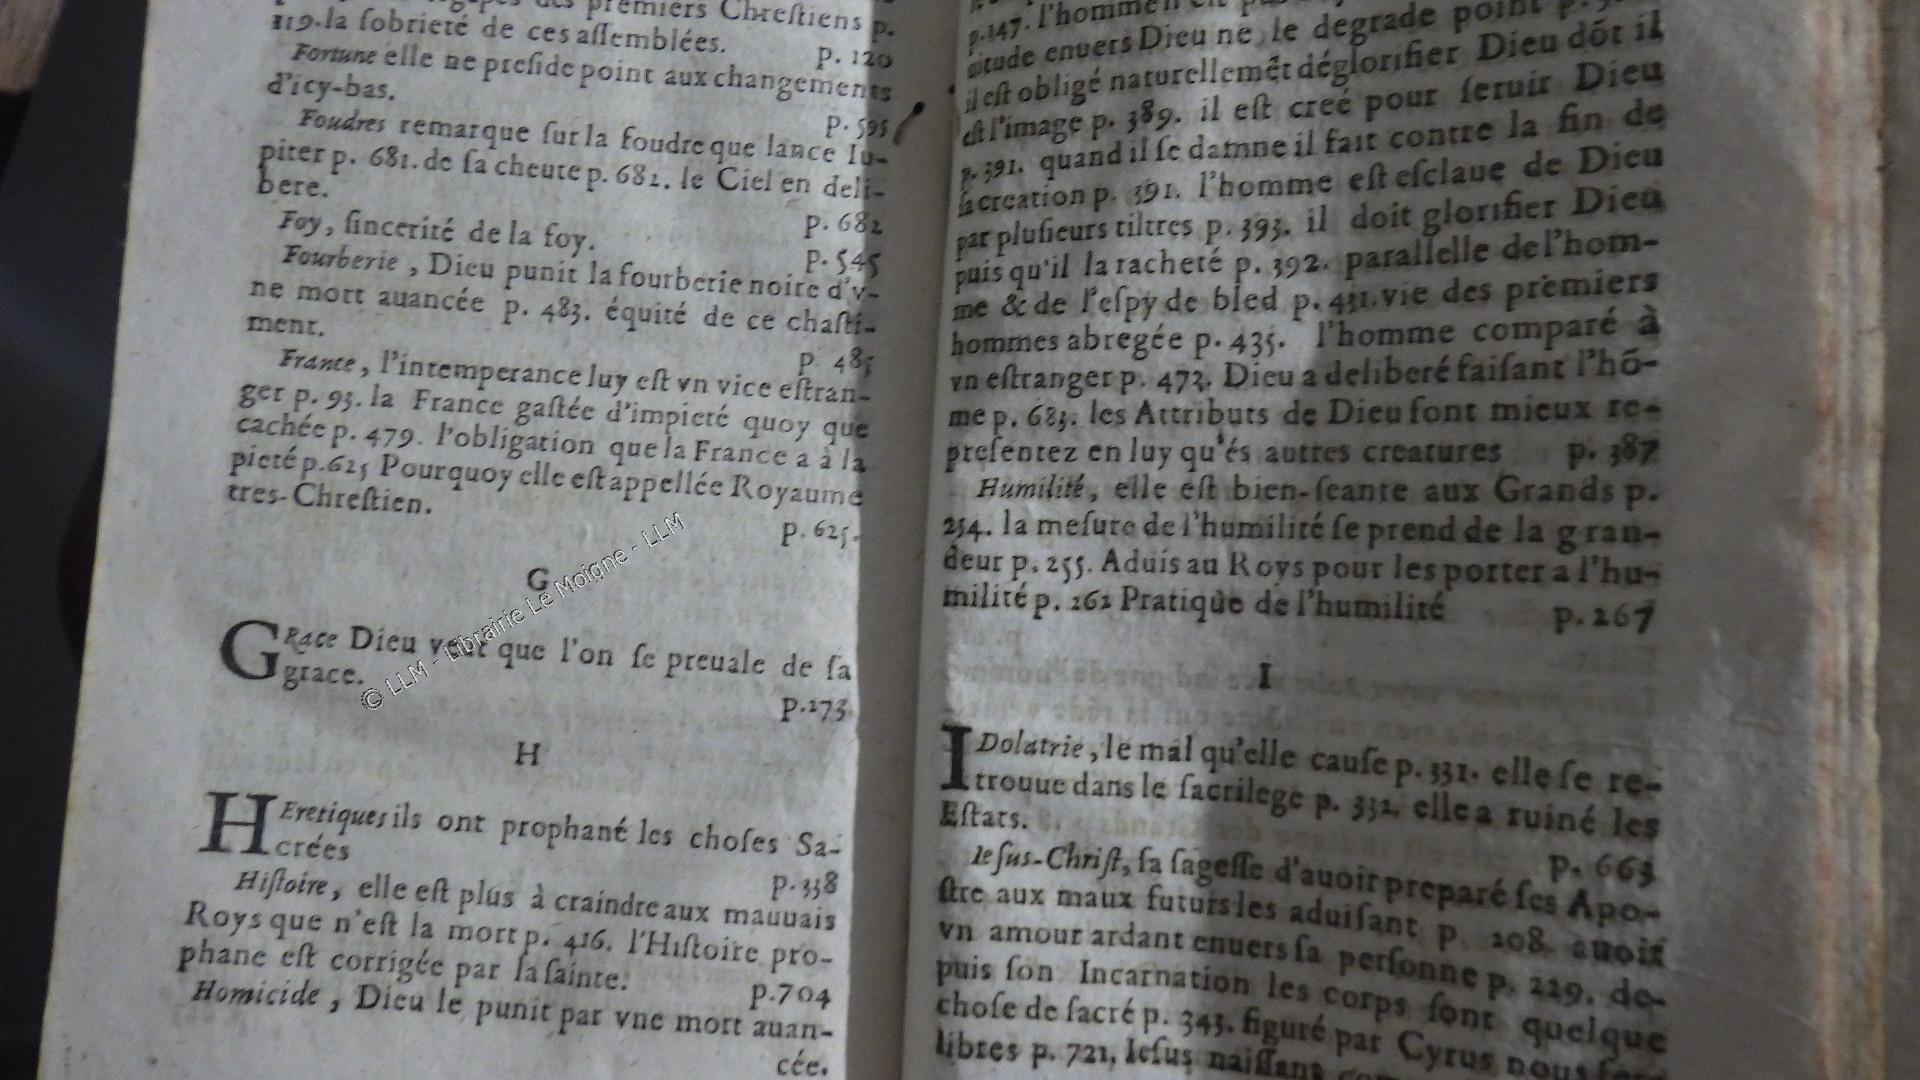 premiers Chreſtiens p.
119. la ſobrieté de ces aſſemblées. p. 120
Fortune elle ne preſide point aux changements
d'icy-bas. p. 595
Foudres remarque ſur la foudre que lance Iu-
piter p. 681. de ſa cheute p. 682. le Ciel en deli-
bere. p. 682
Foy, ſincerité de la foy. p. 545
Fourberie, Dieu punit la fourberie noire d'v-
ne mort auancée p. 483. équité de ce chaſti-
ment. p. 485
France, l'intemperance luy eſt vn vice eſtran-
ger p. 93. la France gaſtée d'impieté quoy que
cachée p. 479. l'obligation que la France a à la
pieté p. 625 Pourquoy elle eſt appellée Royaume
tres-Chreſtien. p. 625.
G
GRace Dieu veut que l'on ſe preuale de ſa
grace. p. 273
H
HEretiques ils ont prophané les choſes Sa-
crées p. 338
Hiſtoire, elle eſt plus à craindre aux mauuais
Roys que n'eſt la mort p. 416. l'Hiſtoire pro-
phane eſt corrigée par la ſainte. p. 704
Homicide, Dieu le punit par vne mort auan-
cée.
p. 147. l'homme
enuers Dieu ne le degrade point
il eſt obligé naturellemēt déglorifier Dieu dōt il
eſt l'image p. 389. il eſt creé pour ſeruir Dieu
p. 391. quand il ſe damne il fait contre la fin de
ſa creation p. 391. l'homme eſt eſclaue de Dieu
par pluſieurs tiltres p. 393. il doit glorifier Dieu
puis qu'il la racheté p. 392. parallelle de l'hom-
me & de l'eſpy de bled p. 431. vie des premiers
hommes abregée p. 435. l'homme comparé à
vn eſtranger p. 473. Dieu a deliberé faiſant l'hō-
me p. 683. les Attributs de Dieu ſont mieux re-
preſentez en luy qu'és autres creatures p. 387
Humilité, elle eſt bien-ſeante aux Grands p.
254. la meſure de l'humilité ſe prend de la gran-
deur p. 255. Aduis au Roys pour les porter a l'hu-
milité p. 262 Pratique de l'humilité p. 267
I
IDolatrie, le mal qu'elle cauſe p. 331. elle ſe re-
trouue dans le ſacrilege p. 332. elle a ruiné les
Eſtats. p. 663
Ieſus-Chriſt, ſa ſageſſe d'auoir preparé ſes Apo-
ſtre aux maux futurs les aduiſant p. 208. auoit
vn amour ardant enuers ſa perſonne p. 229. de-
puis ſon Incarnation les corps ſont quelque
choſe de ſacré p. 343. figuré par Cyrus nous
libres p. 721, Ieſus naiſſant
© LLM - Librairie Le Moigne - LLM